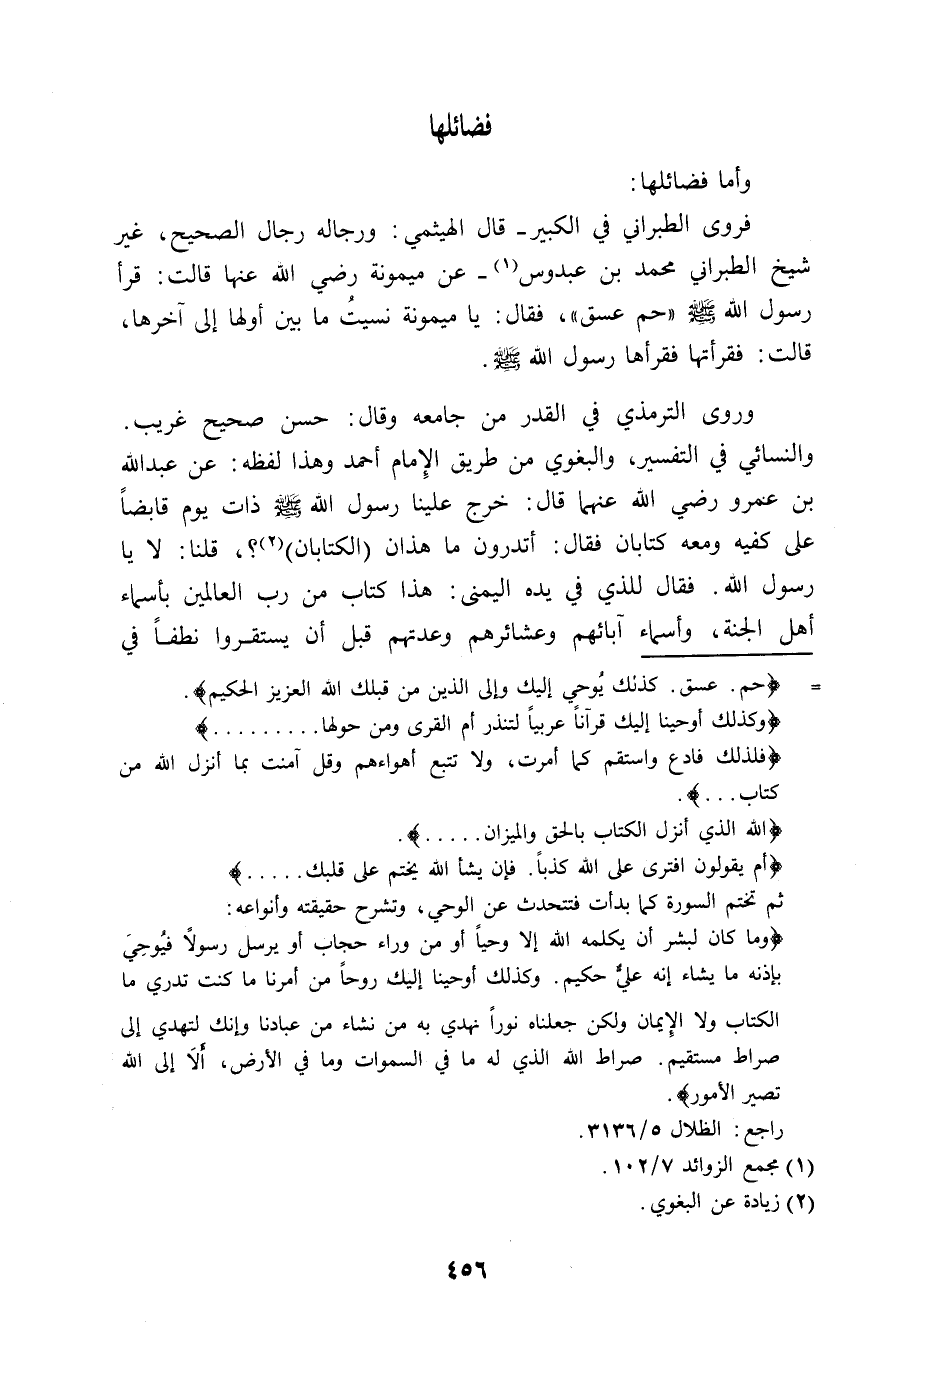 فضائلها
وأما فضائلها:
فروى الطبراني في الكبير ـ قال الهيثمي: ورجاله رجال الصحيح، غير
شيخ الطبراني محمد بن عبدوس(١) ـ عن ميمونة رضي الله عنها قالت: قرأ
رسول الله ﷺ «حم عسق»، فقال: يا ميمونة نسيتُ ما بين أولها إلى آخرها،
قالت: فقرأتها فقرأها رسول الله ﷺ.
وروى الترمذي في القدر من جامعه وقال: حسن صحيح غريب.
والنسائي في التفسير، والبغوي من طريق الإمام أحمد وهذا لفظه: عن عبدالله
بن عمرو رضي الله عنهما قال: خرج علينا رسول الله ﷺ ذات يوم قابضاً
على كفيه ومعه كتابان فقال: أتدرون ما هذان (الكتابان)(٢)؟، قلنا: لا يا
رسول الله. فقال للذي في يده اليمنى: هذا كتاب من رب العالمين بأسماء
أهل الجنة، وأسماء آبائهم وعشائرهم وعدتهم قبل أن يستقروا نطفاً في
= ﴿حم. عسق. كذلك يُوحي إليك وإلى الذين من قبلك الله العزيز الحكيم﴾.
﴿وكذلك أوحينا إليك قرآناً عربياً لتنذر أم القرى ومن حولها.........﴾
﴿فلذلك فادع واستقم كما أمرت، ولا تتبع أهواءهم وقل آمنت بما أنزل الله من
كتاب...﴾.
﴿الله الذي أنزل الكتاب بالحق والميزان.....﴾.
﴿أم يقولون افترى على الله كذباً. فإن يشأ الله يختم على قلبك.....﴾
ثم تختم السورة كما بدأت فتتحدث عن الوحي، وتشرح حقيقته وأنواعه:
﴿وما كان لبشر أن يكلمه الله إلا وحياً أو من وراء حجاب أو يرسل رسولًا فيُوحِيَ
بإذنه ما يشاء إنه عليٌّ حكيم. وكذلك أوحينا إليك روحاً من أمرنا ما كنت تدري ما
الكتاب ولا الإيمان ولكن جعلناه نوراً نهدي به من نشاء من عبادنا وإنك لتهدي إلى
صراط مستقيم. صراط الله الذي له ما في السموات وما في الأرض، أَلَا إلى الله
تصير الأمور﴾.
راجع: الظلال ٣١٣٦/٥.
(١) مجمع الزوائد ١٠٢/٧.
(٢) زيادة عن البغوي.
٤٥٦